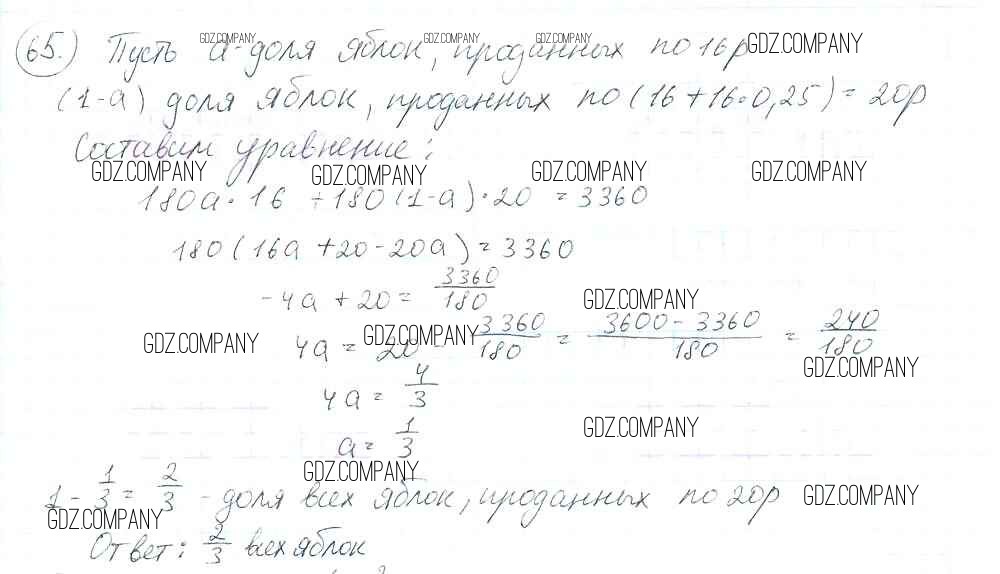 65.) Пусть a-доля яблок, проданных по 16р
(1-a) доля яблок, проданных по (16+16·0,25)=20р
Составим уравнение:
180a·16 + 180(1-a)·20 = 3360
180(16a+20-20a)=3360
-4a+20 = 3360/180
4a = 20 - 3360/180 = 3600-3360/180 = 240/180
4a = 4/3
a = 1/3
1 - 1/3 = 2/3 - доля всех яблок, проданных по 20р
Ответ: 2/3 всех яблок
GDZ.COMPANY GDZ.COMPANY GDZ.COMPANY GDZ.COMPANY
GDZ.COMPANY GDZ.COMPANY GDZ.COMPANY GDZ.COMPANY
GDZ.COMPANY
GDZ.COMPANY GDZ.COMPANY GDZ.COMPANY
GDZ.COMPANY
GDZ.COMPANY GDZ.COMPANY
GDZ.COMPANY